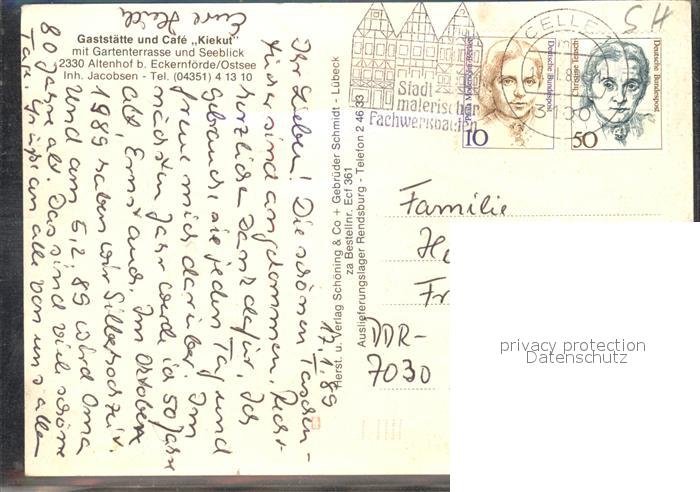 Gaststätte und Café „Kiekut"
mit Gartenterrasse und Seeblick
2330 Altenhof b. Eckernförde/Ostsee
Inh. Jacobsen - Tel. (04351) 4 13 10
17.1.89
Ihr Lieben! Die schönen Taschen-
tücher sind angekommen, Recht
herzlichen Dank dafür, Ich
gebrauche sie jeden Tag und
freue mich darüber. Im
nächsten Jahr werde ich 50 Jahre
alt, Ernst auch. Im Oktober
1989 haben wir Silberhochzeit.
Und am 5.2.89 wird Oma
80 Jahre alt. Das sind viel schöne
Tage. Grüße an alle von uns allen
Eure
Herst. u. Verlag Schöning & Co + Gebrüder Schmidt - Lübeck
za Bestellnr. Ecf 361
Auslieferungslager Rendsburg - Telefon 2 46 33
Stadt
malerischer
Fachwerkbauten
CELLE 1
3100
Paula Modersohn-Becker
Deutsche Bundespost
10
Christine Teusch
Deutsche Bundespost
50
SH
Familie
He
Fr
DDR-
7030
privacy protection
Datenschutz